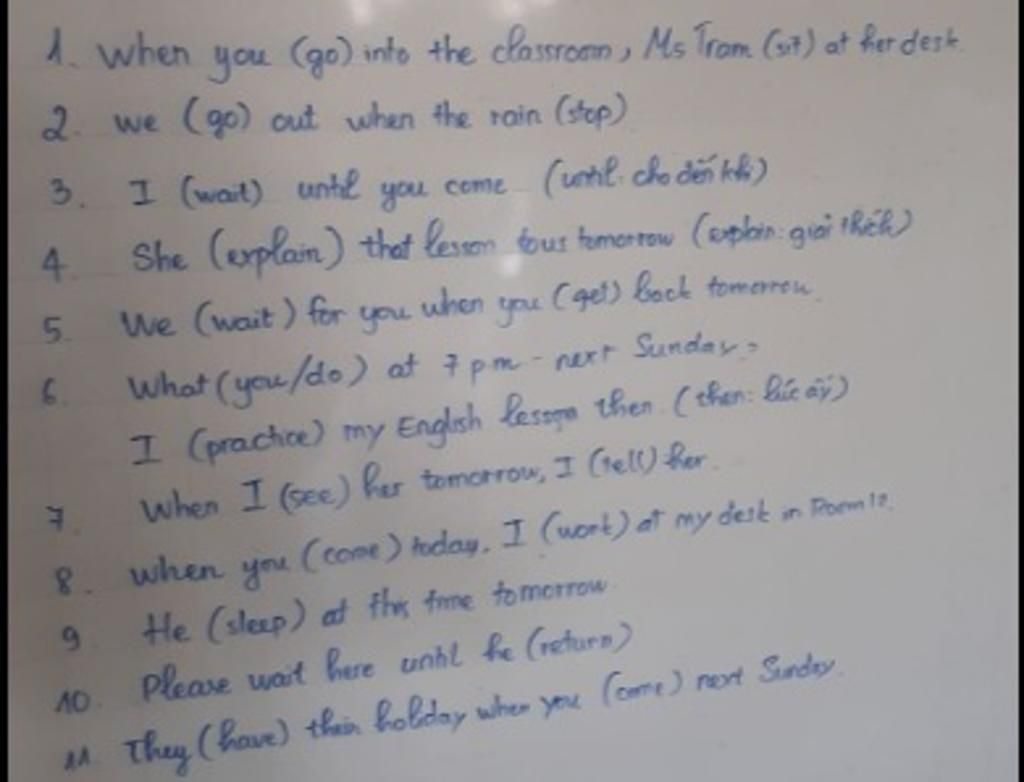 1. When you (go) into the classroom, Ms Tram (sit) at her desk.
2. we (go) out when the rain (stop)
3. I (wait) until you come (until: cho đến khi)
4. She (explain) that lesson to us tomorrow (explain: giải thích)
5. We (wait) for you when you (get) back tomorrow
6. What (you/do) at 7 pm - next Sunday?
I (practice) my English lesson then. (then: lúc ấy)
7. When I (see) her tomorrow, I (tell) her.
8. When you (come) today, I (work) at my desk in Room 12.
9. He (sleep) at this time tomorrow
10. Please wait here until he (return)
11. They (have) their holiday when you (come) next Sunday.